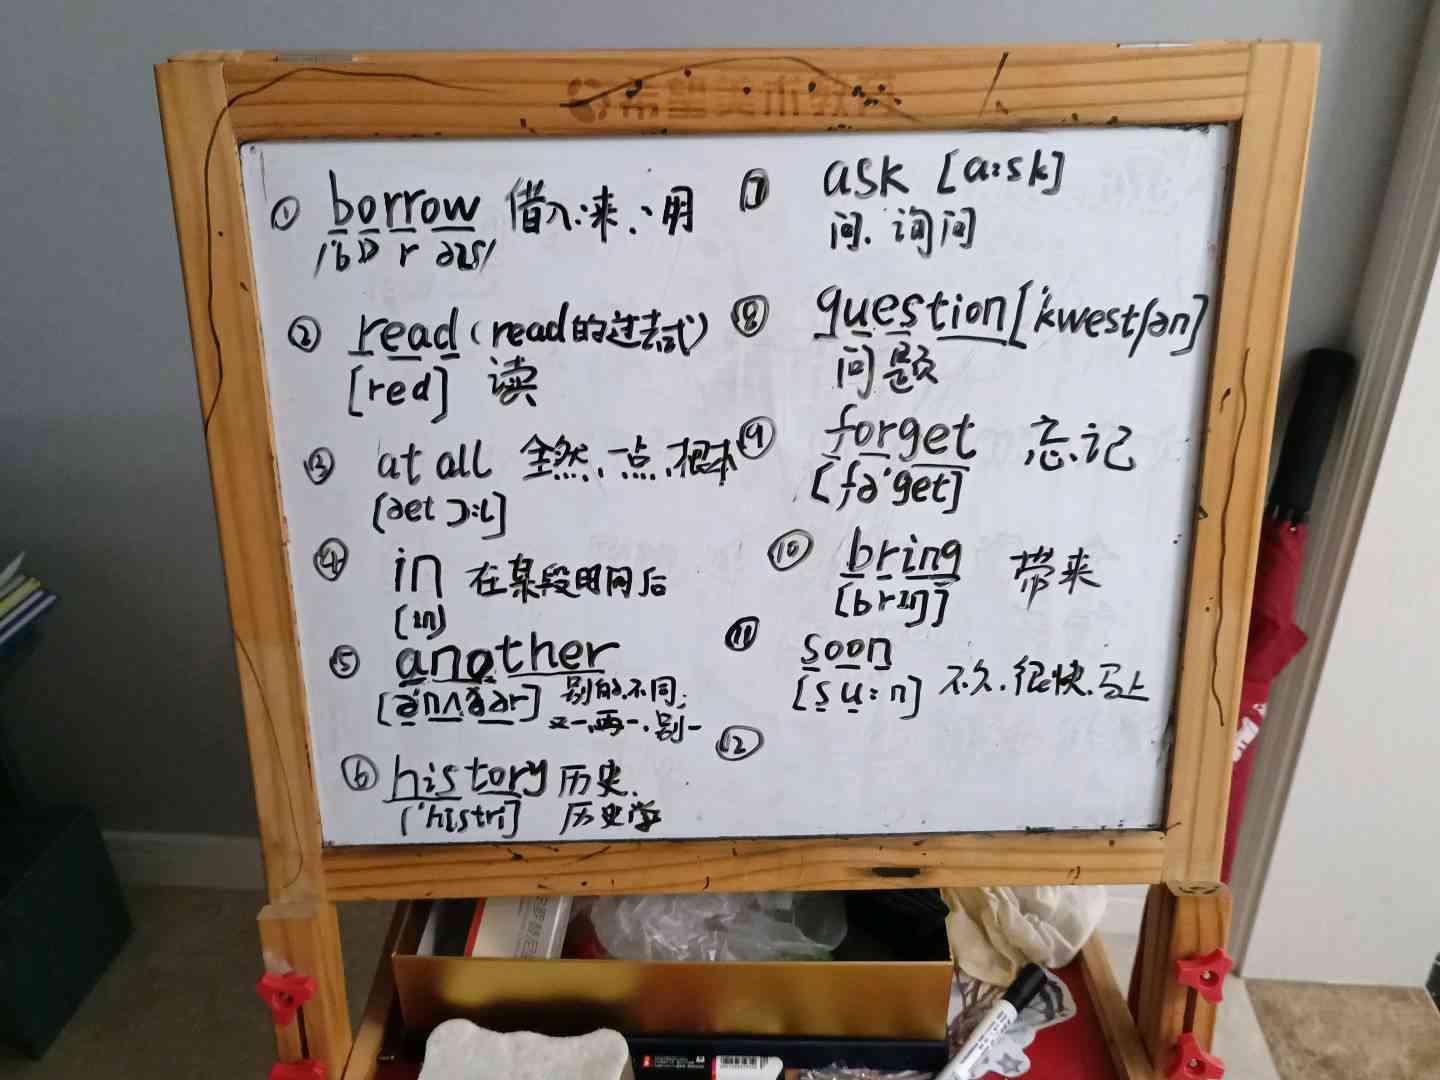 ① borrow 借入.来、用
/'bɒrəʊ/
② read (read的过去式)
[red] 读
③ at all 全然、一点、根本
[əet ɔ:l]
④ in 在某段时间后
[ɪn]
⑤ another
[ə'nʌðər] 别的.不同;
又一.再一.别一
⑥ history 历史.
['hɪstri] 历史学
⑦ ask [a:sk]
问、询问
⑧ question ['kwestʃən]
问题
⑨ forget 忘记
[fə'get]
⑩ bring 带来
[brɪŋ]
⑪ soon
[su:n] 不久.很快.马上
⑫